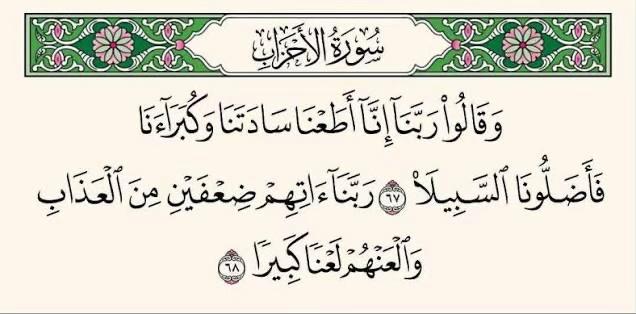 سُورَةُ الأَحْزَابِ
وَقَالُوا۟ رَبَّنَآ إِنَّآ أَطَعْنَا سَادَتَنَا وَكُبَرَآءَنَا
فَأَضَلُّونَا ٱلسَّبِيلَا۠ ٦٧ رَبَّنَآ ءَاتِهِمْ ضِعْفَيْنِ مِنَ ٱلْعَذَابِ
وَٱلْعَنْهُمْ لَعْنًا كَبِيرًا ٦٨